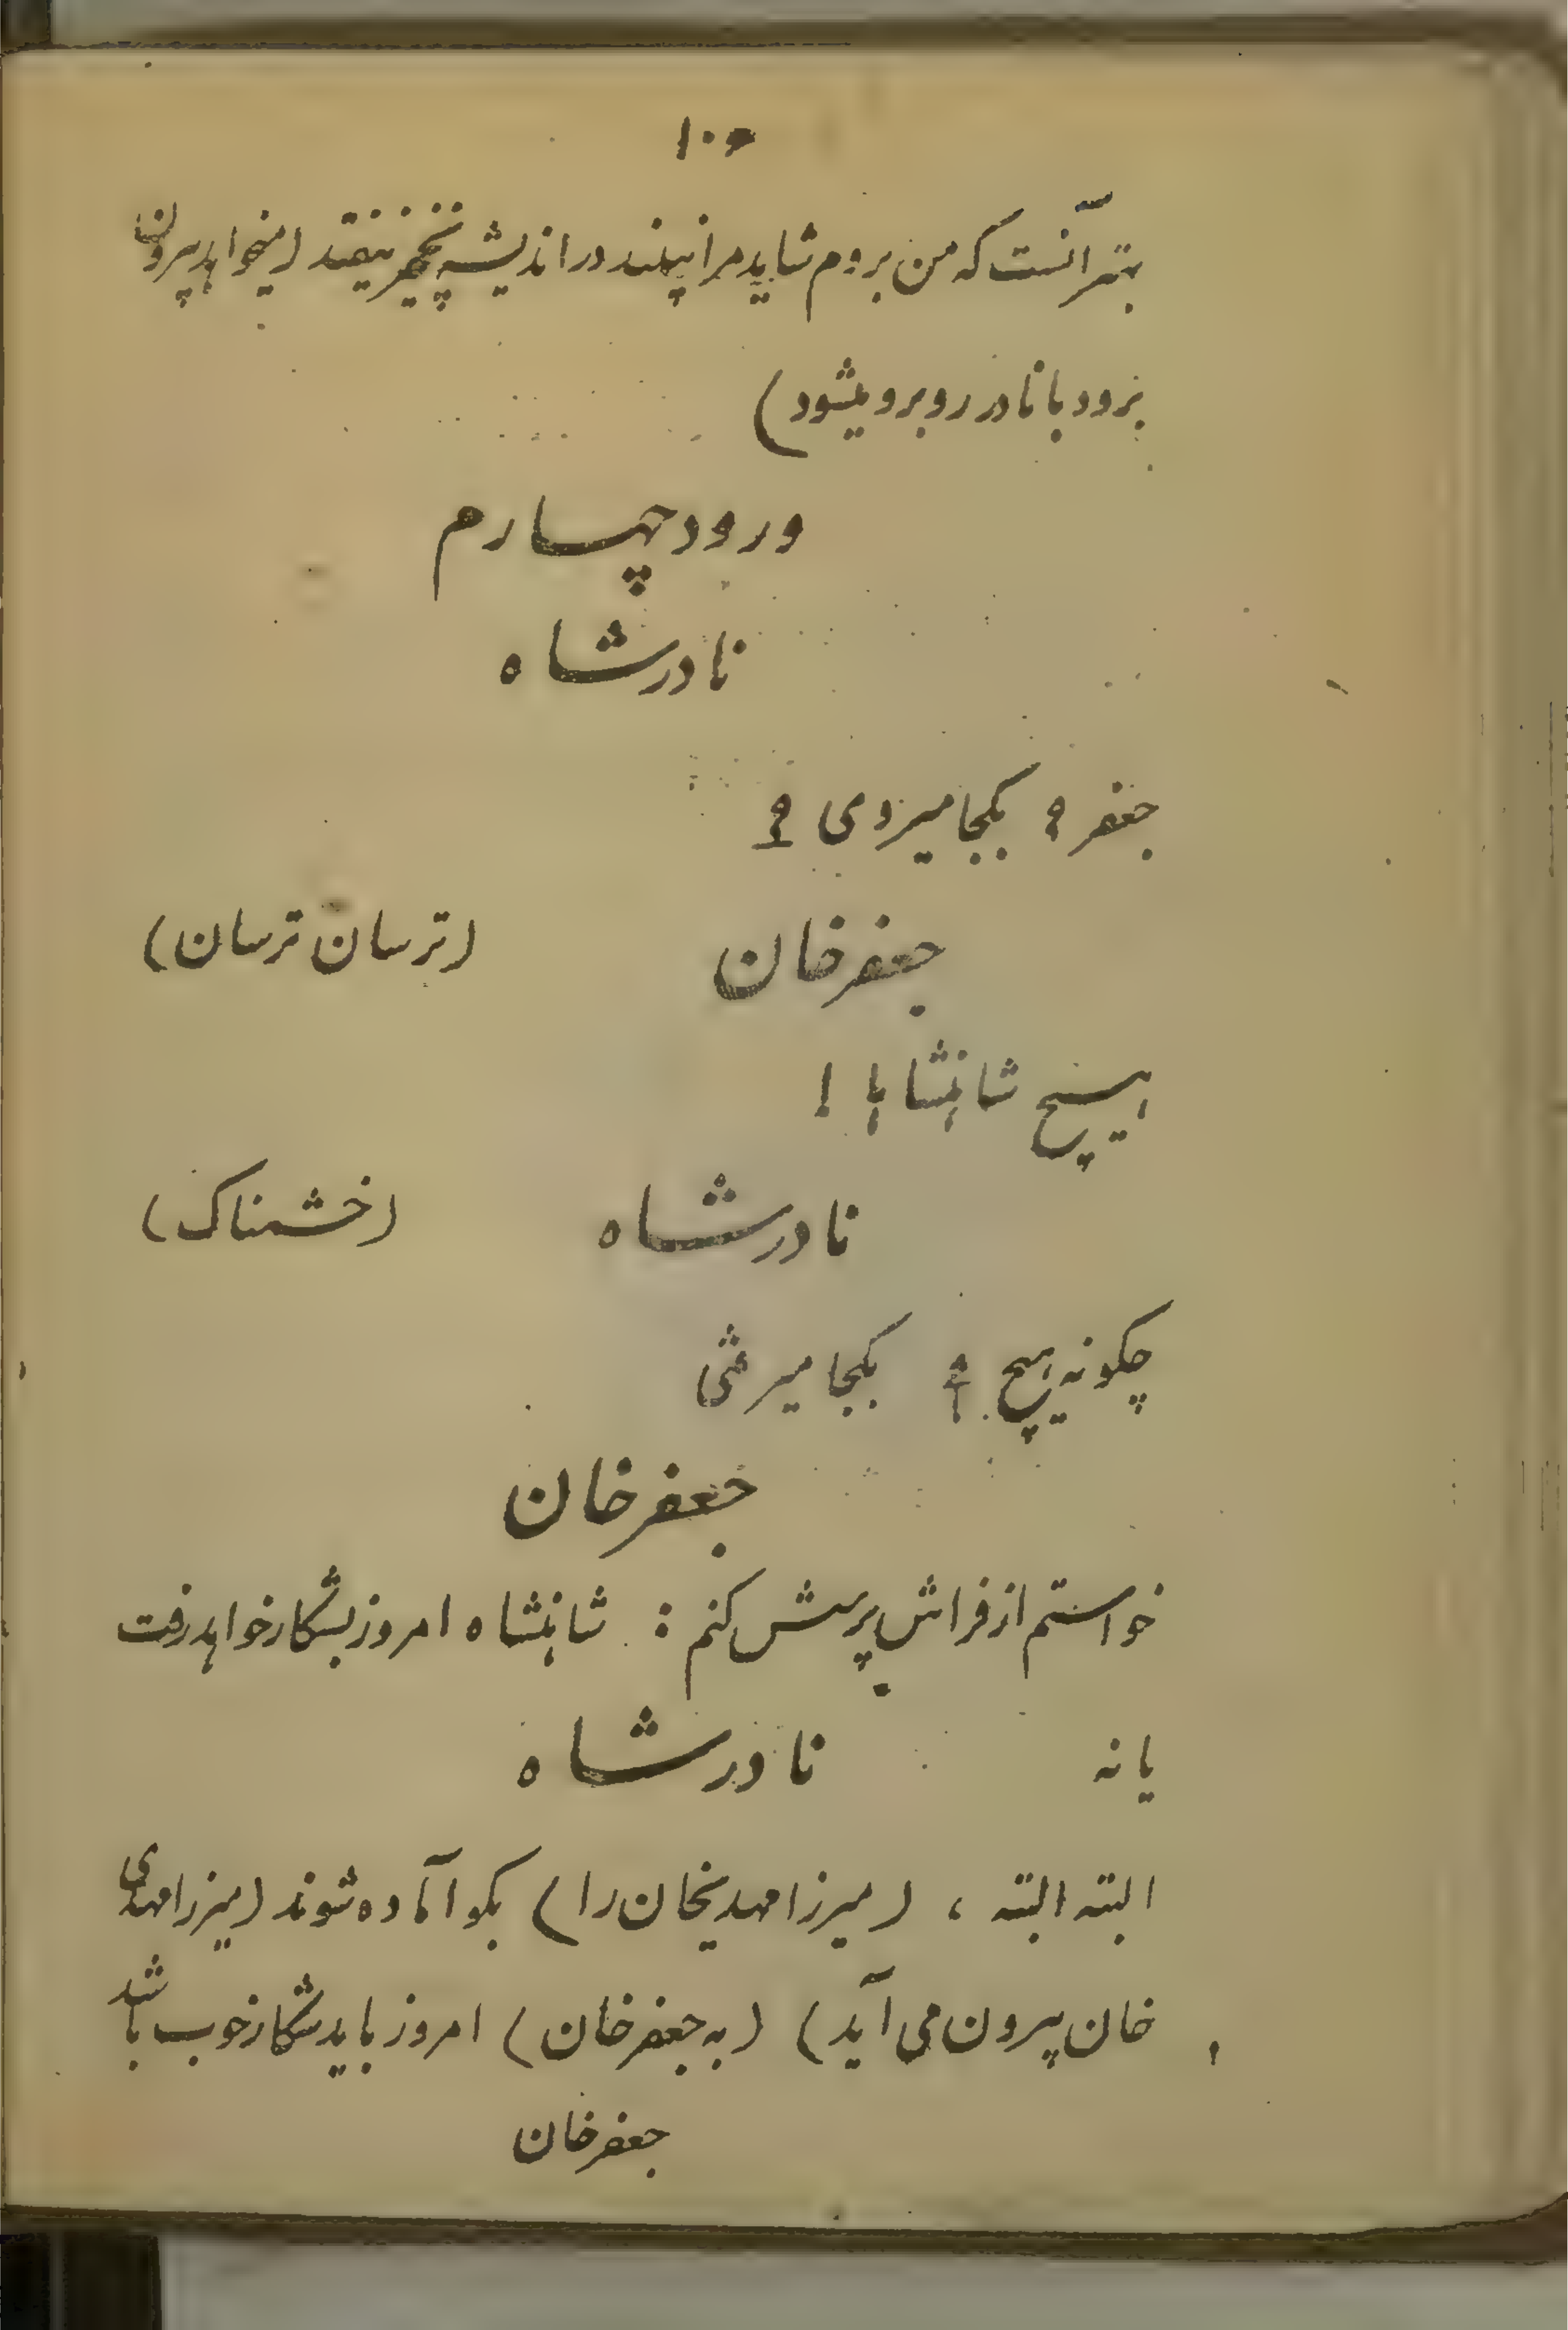 ۱۰۵
بهتر آنست که من بروم شاید مرا نبیند در اندیشه نخچیر نیفتد (میخواهد بیرون
برود با نادر روبرو میشود)
ورود چهارم
نادرشاه
جعفر؟ بکجا میروی؟
جعفرخان (ترسان ترسان)
هیچ شاهنشاها!
نادرشاه (خشمناک)
چگونه هیچ؟ بکجا میرفتی
جعفرخان
خواستم از فراش پرسش کنم: شاهنشاه امروز بشکار خواهد رفت
یا نه نادرشاه
البته البته، (میرزا مهدیخان را) بگو آماده شوند (میرزا مهدی
خان بیرون می آید) (به جعفرخان) امروز باید شکار خوب باشد
جعفرخان